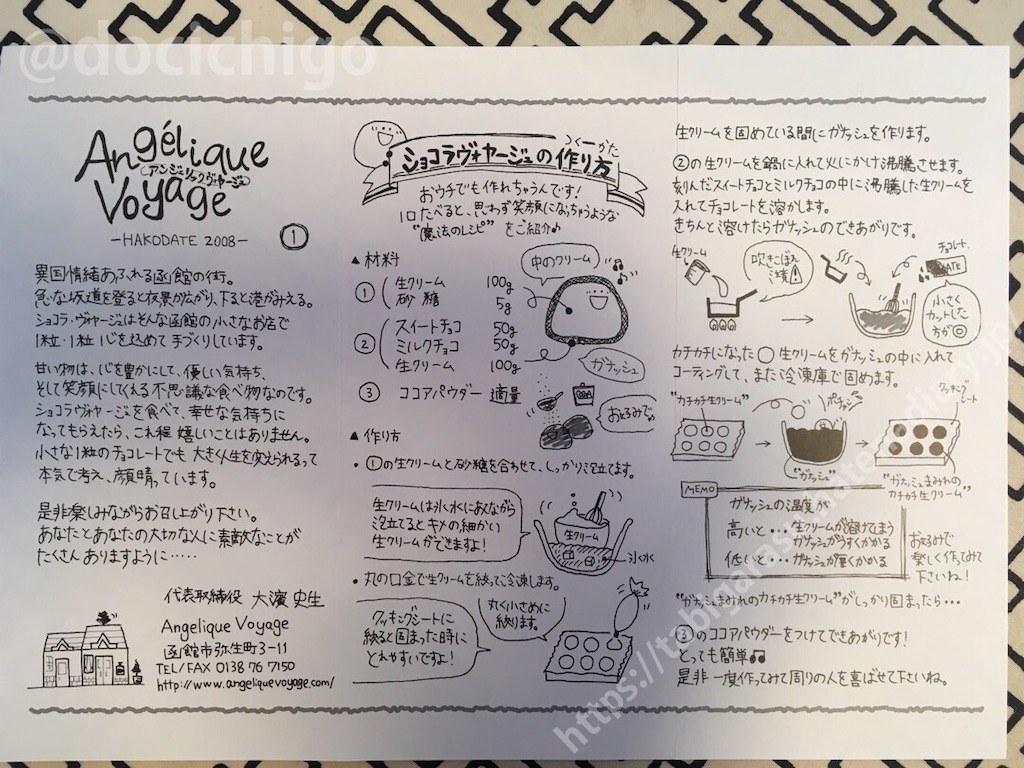 @docichigo
Angélique
(アンジェリックヴォヤージュ)
Voyage
-HAKODATE 2008-
①
異国情緒あふれる函館の街。
急な坂道を登ると夜景が広がり、下ると港がみえる。
ショコラ・ヴォヤージュはそんな函館の小さなお店で
1粒・1粒 心を込めて 手づくりしています。
甘い物は、心を豊かにして、優しい気持ち、
そして笑顔にしてくれる不思議な食べ物なのです。
ショコラヴォヤージュを食べて、幸せな気持ちに
なってもらえたら、これ程 嬉しいことはありません。
小さな1粒のチョコレートでも 大きく人生を変えられるって
本気で考え、顔晴っています。
是非楽しみながらお召上がり下さい。
あなたとあなたの大切な人に素敵なことが
たくさん ありますように・・・・・
代表取締役 大濱 史生
Angelique Voyage
函館市弥生町3-11
TEL/FAX 0138 76 7150
http://www.angeliquevoyage.com/
つくーかた
ショコラヴォヤージュの作り方
おウチでも作れちゃうんです!
1口たべると、思わず笑顔になっちゃうような
"魔法のレシピ" をご紹介♪
▲材料
① 生クリーム 100g
砂糖 5g
② スイートチョコ 50g
ミルクチョコ 50g
生クリーム 100g
③ ココアパウダー 適量
中のクリーム
ガナッシュ
おこのみで♪
▲作り方
・①の生クリームと砂糖を合わせて、しっかり泡立てます。
生クリームは氷水にあてながら
泡立てるとキメの細かい
生クリームができますよ!
生クリーム
氷水
・丸の口金で生クリームを絞って冷凍します。
クッキングシートに
絞ると固まった時に
とれやすいですよ!
丸く小さめに
絞ります。
生クリームを固めている間にガナッシュを作ります。
②の生クリームを鍋に入れて火にかけ沸騰させます。
刻んだスイートチョコとミルクチョコの中に沸騰した生クリームを
入れてチョコレートを溶かします。
きちんと溶けたらガナッシュのできあがりです。
生クリーム
吹きこぼれ
注意!
チョコレート
小さく
カットした
方が◎
カチカチになった○生クリームをガナッシュの中に入れて
コーティングして、また冷凍庫で固めます。
"カチカチ生クリーム"
ポチャン
クッキングシート
"ガナッシュ"
"ガナッシュまみれの
カチカチ生クリーム"
MEMO
ガナッシュの温度が
高いと・・・生クリームが溶けてしまう
ガナッシュがうすくかかる
低いと・・・ガナッシュが厚くかかる
お好みで
楽しく作ってみて
下さいね!
"ガナッシュまみれのカチカチ生クリーム"がしっかり固まったら・・・
③のココアパウダーをつけてできあがりです!
とっても簡単♫
是非 一度作ってみて周りの人を喜ばせて下さいね。